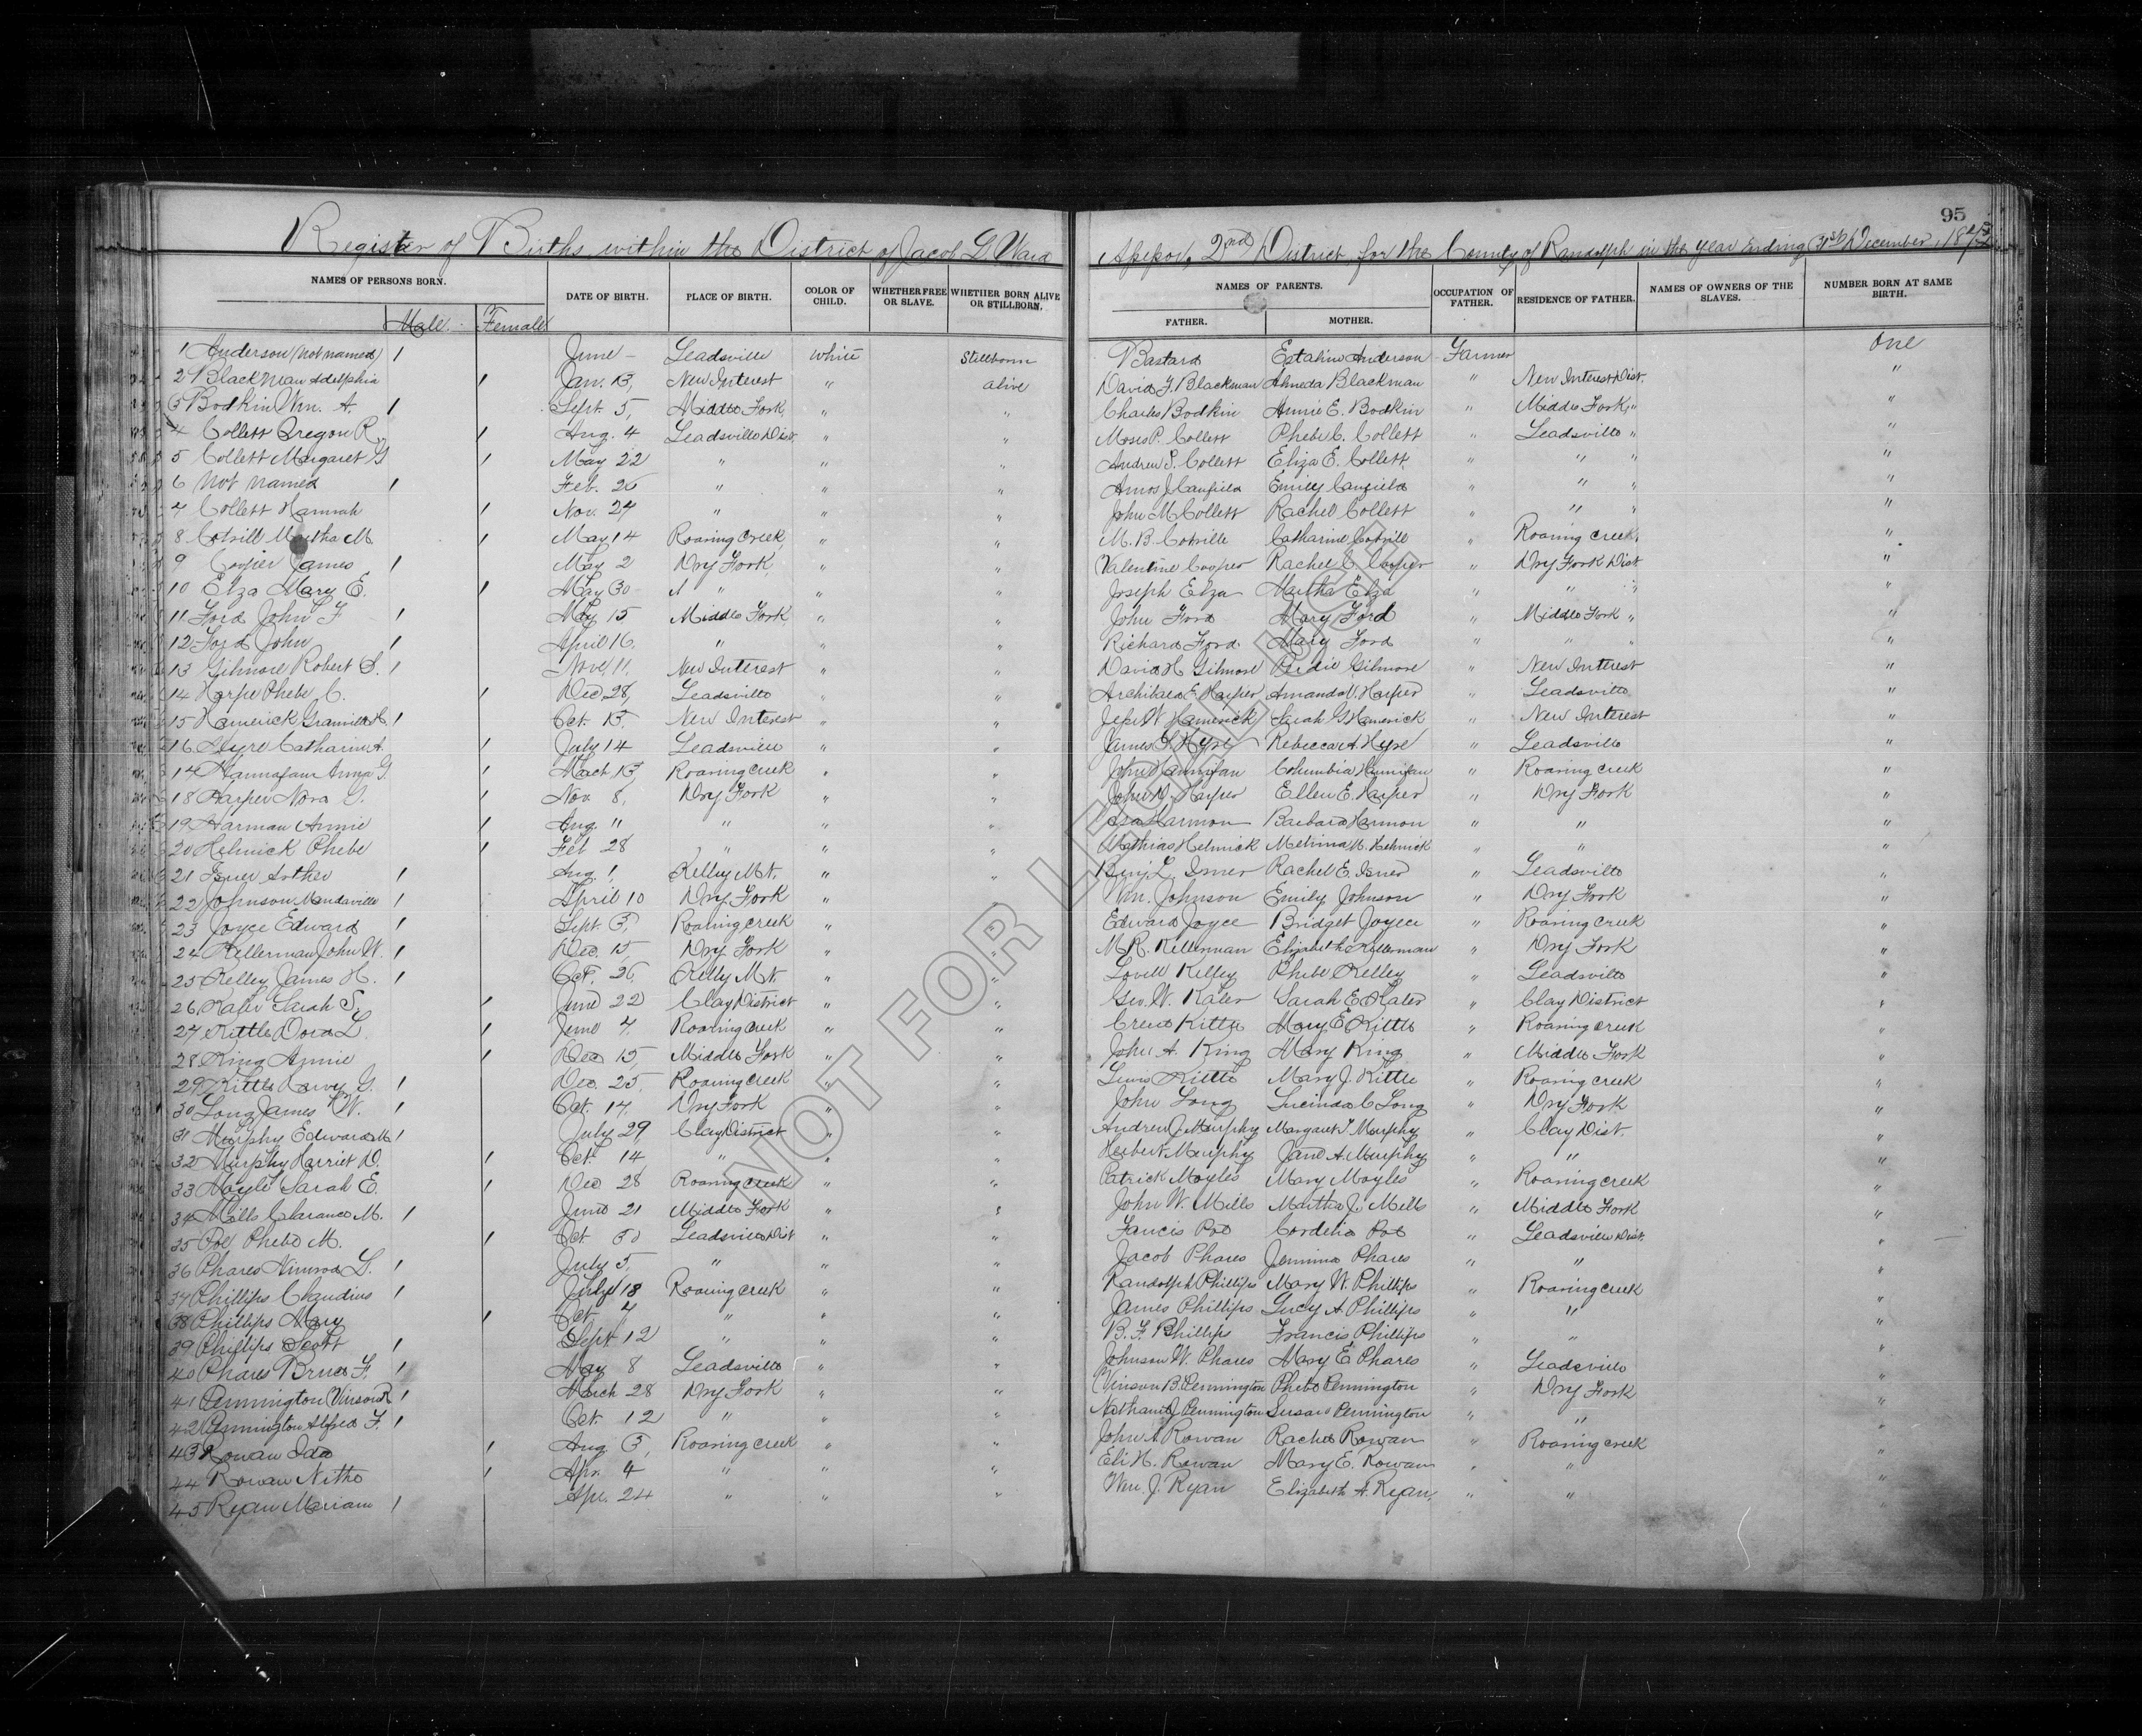 95
Register of Births within the District of Jacob G. Ward Assessor, 2nd District for the County of Randolph in the Year Ending 31st December, 187
NAMES OF PERSONS BORN. DATE OF BIRTH. PLACE OF BIRTH. COLOR OF CHILD. WHETHER FREE OR SLAVE. WHETHER BORN ALIVE OR STILLBORN. NAMES OF PARENTS. OCCUPATION OF FATHER. RESIDENCE OF FATHER. NAMES OF OWNERS OF THE SLAVES. NUMBER BORN AT SAME BIRTH.
Male. Female FATHER. MOTHER.
1 Anderson (not named) 1 June - Leadsville white Stillborn Bastard Estaline Anderson Farmer One
2 Blackman Adelphia 1 Jan. 13, New Interest " alive David F. Blackman Almeda Blackman " New Interest Dist. "
3 Bodkin Wm. A. 1 Sept. 5, Middle Fork, " " Charles Bodkin Annie E. Bodkin " Middle Fork " "
4 Collett Oregon R. 1 Aug. 4 Leadsville Dist. " " Moses P. Collett Phebe C. Collett " Leadsville " "
5 Collett Margaret G 1 May 22 " " " Andrew S. Collett Eliza E. Collett " " " "
6 Not named 1 Feb. 26 " " " Amos J Canfield Emily Canfield " " " "
7 Collett Hannah 1 Nov. 27 " " " John M Collett Rachel Collett " " " "
8 Cotrill Martha M. 1 May 14 Roaring Creek, " " M. B. Cotrille Catharine Cotrill " Roaring Creek, "
9 Cooper James 1 May 2 Dry Fork, " " Valentine Cooper Rachel C Cooper " Dry Fork Dist "
10 Elza Mary E. 1 May 30 " " " Joseph Elza Martha Elza " " " "
11 Ford John F 1 May 15 Middle Fork, " " John Ford Mary Ford " Middle Fork " "
12 Ford John 1 April 16, " " " Richard Ford Mary Ford " " " "
13 Gilmore Robert S. 1 Nov. 11, New Interest " " David H Gilmore Bedie Gilmore " New Interest "
14 Harpe Phebe C. 1 Dec 28, Leadsville " " Archibald E. Harper Amanda V. Harper " Leadsville "
15 Hamerick Granville H. 1 Oct. 13, New Interest " " Jesse W Hamerick Sarah G Hamerick " New Interest "
16 Hyre Catharine A. 1 July 14 Leadsville " " James G Hyre Rebecca A. Hyre " Leadsville "
17 Hannafam Anna G. 1 Mach 13, Roaring creek " " John Hannifan Columbia Hannifan " Roaring creek "
18 Harper Nora G. 1 Nov. 8, Dry Fork " " John D. Harper Ellen E. Harper " Dry Fork "
19 Harman Annie 1 Aug. 11 " " " Asa Harmon Barbara Harmon " " "
20 Helmick Phebe 1 Feb 28 " " " Mathias Helmick Melvina M. Helmick " " "
21 Isner Arther 1 Aug 1, Kelley Mt. " " Benj. L. Isner Rachel E. Isner " Leadsville "
22 Johnson Mandaville 1 April 10 Dry Fork " " Wm. Johnson Emily Johnson " Dry Fork "
23 Joyce Edward 1 Sept. 3, Roaring creek " " Edward Joyce Bridget Joyce " Roaring Creek "
24 Kellerman John W. 1 Dec. 15, Dry Fork " " M R. Kellerman Elizabeth Kellerman " Dry Fork "
25 Kelley James H. 1 Oct. 26, Kelly Mt. " " Lovell Kelley Phebe Kelley " Leadsville "
26 Kaler Sarah S. 1 June 22 Clay District " " Geo. W. Kaler Sarah E Kaler " Clay District "
27 Kittle Dora L. 1 June 7, Roaring creek " " Creed Kittle Mary E. Kittle " Roaring creek "
28 King Annie 1 Dec 15, Middle Fork " " John A. King Mary King " Middle Fork "
29 Kittle Harvy G. 1 Dec. 25, Roaring creek " " Lewis Kittle Mary J. Kittle " Roaring creek "
30 Long James W. 1 Oct. 17, Dry Fork " " John Long Lucinda C Long " Dry Fork "
31 Murphy Edward M 1 July 29, Clay District " " Andrew J. Murphy Margaret J Murphy " Clay Dist. "
32 Murphy Harriet D. 1 Oct. 14 " " " Herbert Murphy Jane A. Murphy " " "
33 Moyle Sarah E. 1 Dec 28 Roaring creek " " Patrick Moyles Mary Moyles " Roaring creek "
34 Mills Clarance M. 1 June 21 Middle Fork " " John W. Mills Martha J. Mills " Middle Fork "
35 Poe Phebe M. 1 Oct 30 Leadsville Dist " " Fancis Poe Cordelia Poe " Leadsville Dist. "
36 Phares Nimrod G. 1 July 5, " " " Jacob Phares Jemima Phares " " "
37 Phillips Claudius 1 July 18 Roaring creek " " Randolph Phillips Mary W. Phillips " Roaring creek "
38 Phillips Mary 1 Oct. 7 " " " James Phillips Lucy A. Phillips " " "
39 Phillips Scott 1 Sept. 12 " " " B. F. Phillips Francis Phillips " " "
40 Phares Bruce F. 1 May 8 Leadsville " " Johnson W. Phares Mary E Phares " Leadsville "
41 Pennington Vinson R 1 March 28 Dry Fork " " Vinson B. Pennington Phebe Pennington " Dry Fork "
42 Pennington Alfred F. 1 Oct. 12 " " " Nathaniel J Pennington Susan Pennington " " "
43 Rowan Ida 1 Aug. 3, Roaring creek " " John A Rowan Rachel Rowan " Roaring creek "
44 Rowan Nitho 1 Apr. 4 " " " Eli H. Rowan Mary E. Rowan " " "
45 Ryan Meriam 1 Apr. 24 " " " Wm. J. Ryan Elizabeth A. Ryan, " " "
NOT FOR LEGAL USE